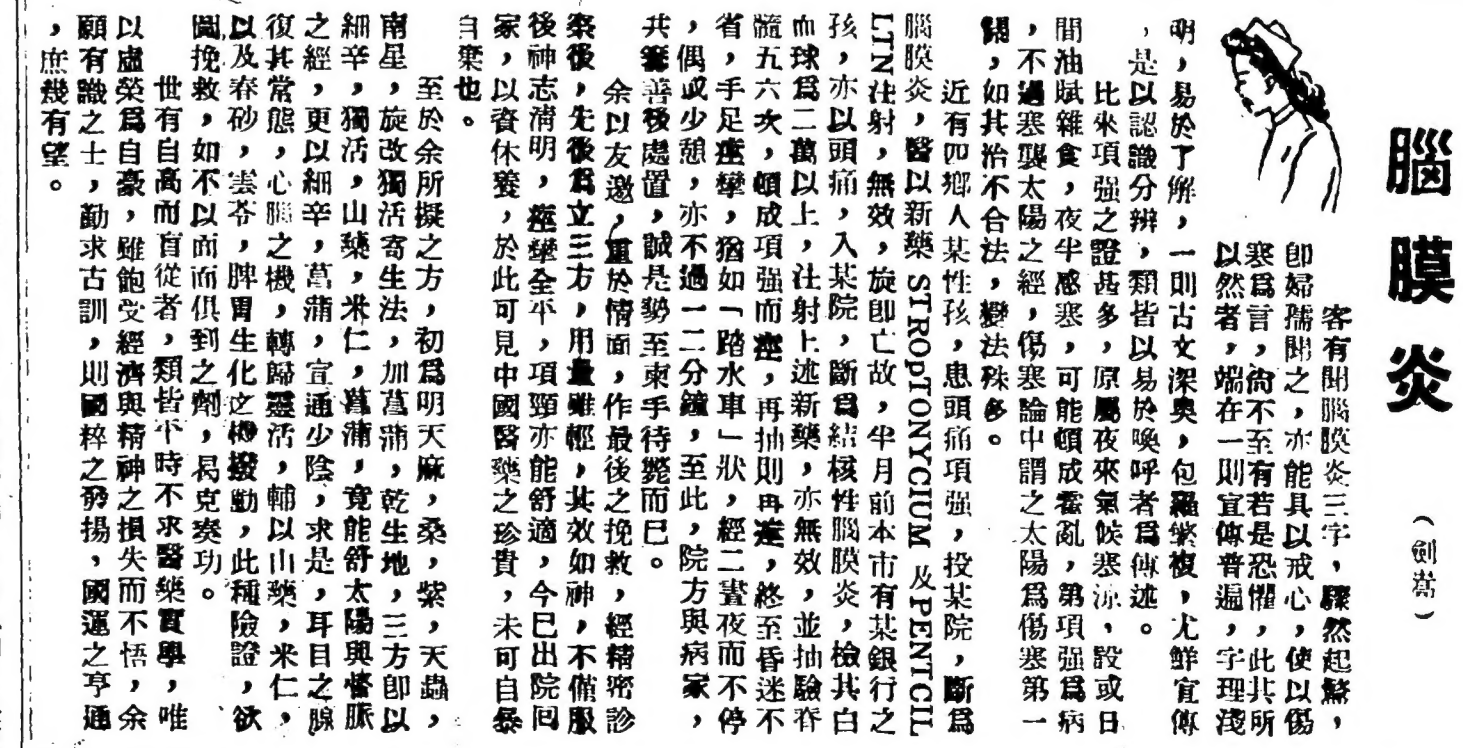 腦膜炎
（劍嵩）
客有聞腦膜炎三字，驟然起驚，
卽婦孺聞之，亦能具以戒心，使以傷
寒爲言，尙不至有若是恐懼，此其所
以然者，端在一則宣傳普遍，字理淺
明，易於了解，一則古文深奧，包羅繁複，尤鮮宣傳
，是以認識分辨，類皆以易於喚呼者爲傳述。
比來項强之證甚多，原屬夜來氣候寒凉，設或日
間油膩雜食，夜半感寒，可能頓成霍亂，第項强爲病
，不過寒襲太陽之經，傷寒論中謂之太陽爲傷寒第一
關，如其治不合法，變法殊多。
近有四鄉人某性孩，患頭痛項强，投某院，斷爲
腦膜炎，醫以新藥 STROpTONYCIUM 及PENTCIL
LTN注射，無效，旋卽亡故，半月前本市有某銀行之
孩，亦以頭痛，入某院，斷爲結核性腦膜炎，檢其白
血球爲二萬以上，注射上述新藥，亦無效，並抽驗脊
髓五六次，頓成項强而痙，再抽則再痙，終至昏迷不
省，手足痙攣，猶如「踏水車」狀，經二晝夜而不停
，偶或少憩，亦不過一二分鐘，至此，院方與病家，
共籌善後處置，誠是勢至束手待斃而已。
余以友邀，重於情面，作最後之挽救，經精密診
察後，先後爲立三方，用量雖輕，其效如神，不僅服
後神志清明，痙攣全平，項頸亦能舒適，今已出院囘
家，以資休養，於此可見中國醫藥之珍貴，未可自暴
自棄也。
至於余所擬之方，初爲明天麻，桑，紫，天蟲，
南星，旋改獨活寄生法，加菖蒲，乾生地，三方卽以
細辛，獨活，山藥，米仁，菖蒲，竟能舒太陽與督脈
之經，更以細辛，菖蒲，宣通少陰，求是，耳目之腺
復其常態，心腦之機，轉歸靈活，輔以山藥，米仁，
以及春砂，雲苓，脾胃生化之機撥動，此種險證，欲
圖挽救，如不以面面俱到之劑，曷克奏功。
世有自高而盲從者，類皆平時不求醫藥實學，唯
以虛榮爲自豪，雖飽受經濟與精神之損失而不悟，余
願有識之士，勤求古訓，則國粹之發揚，國運之亨通
，庶幾有望。